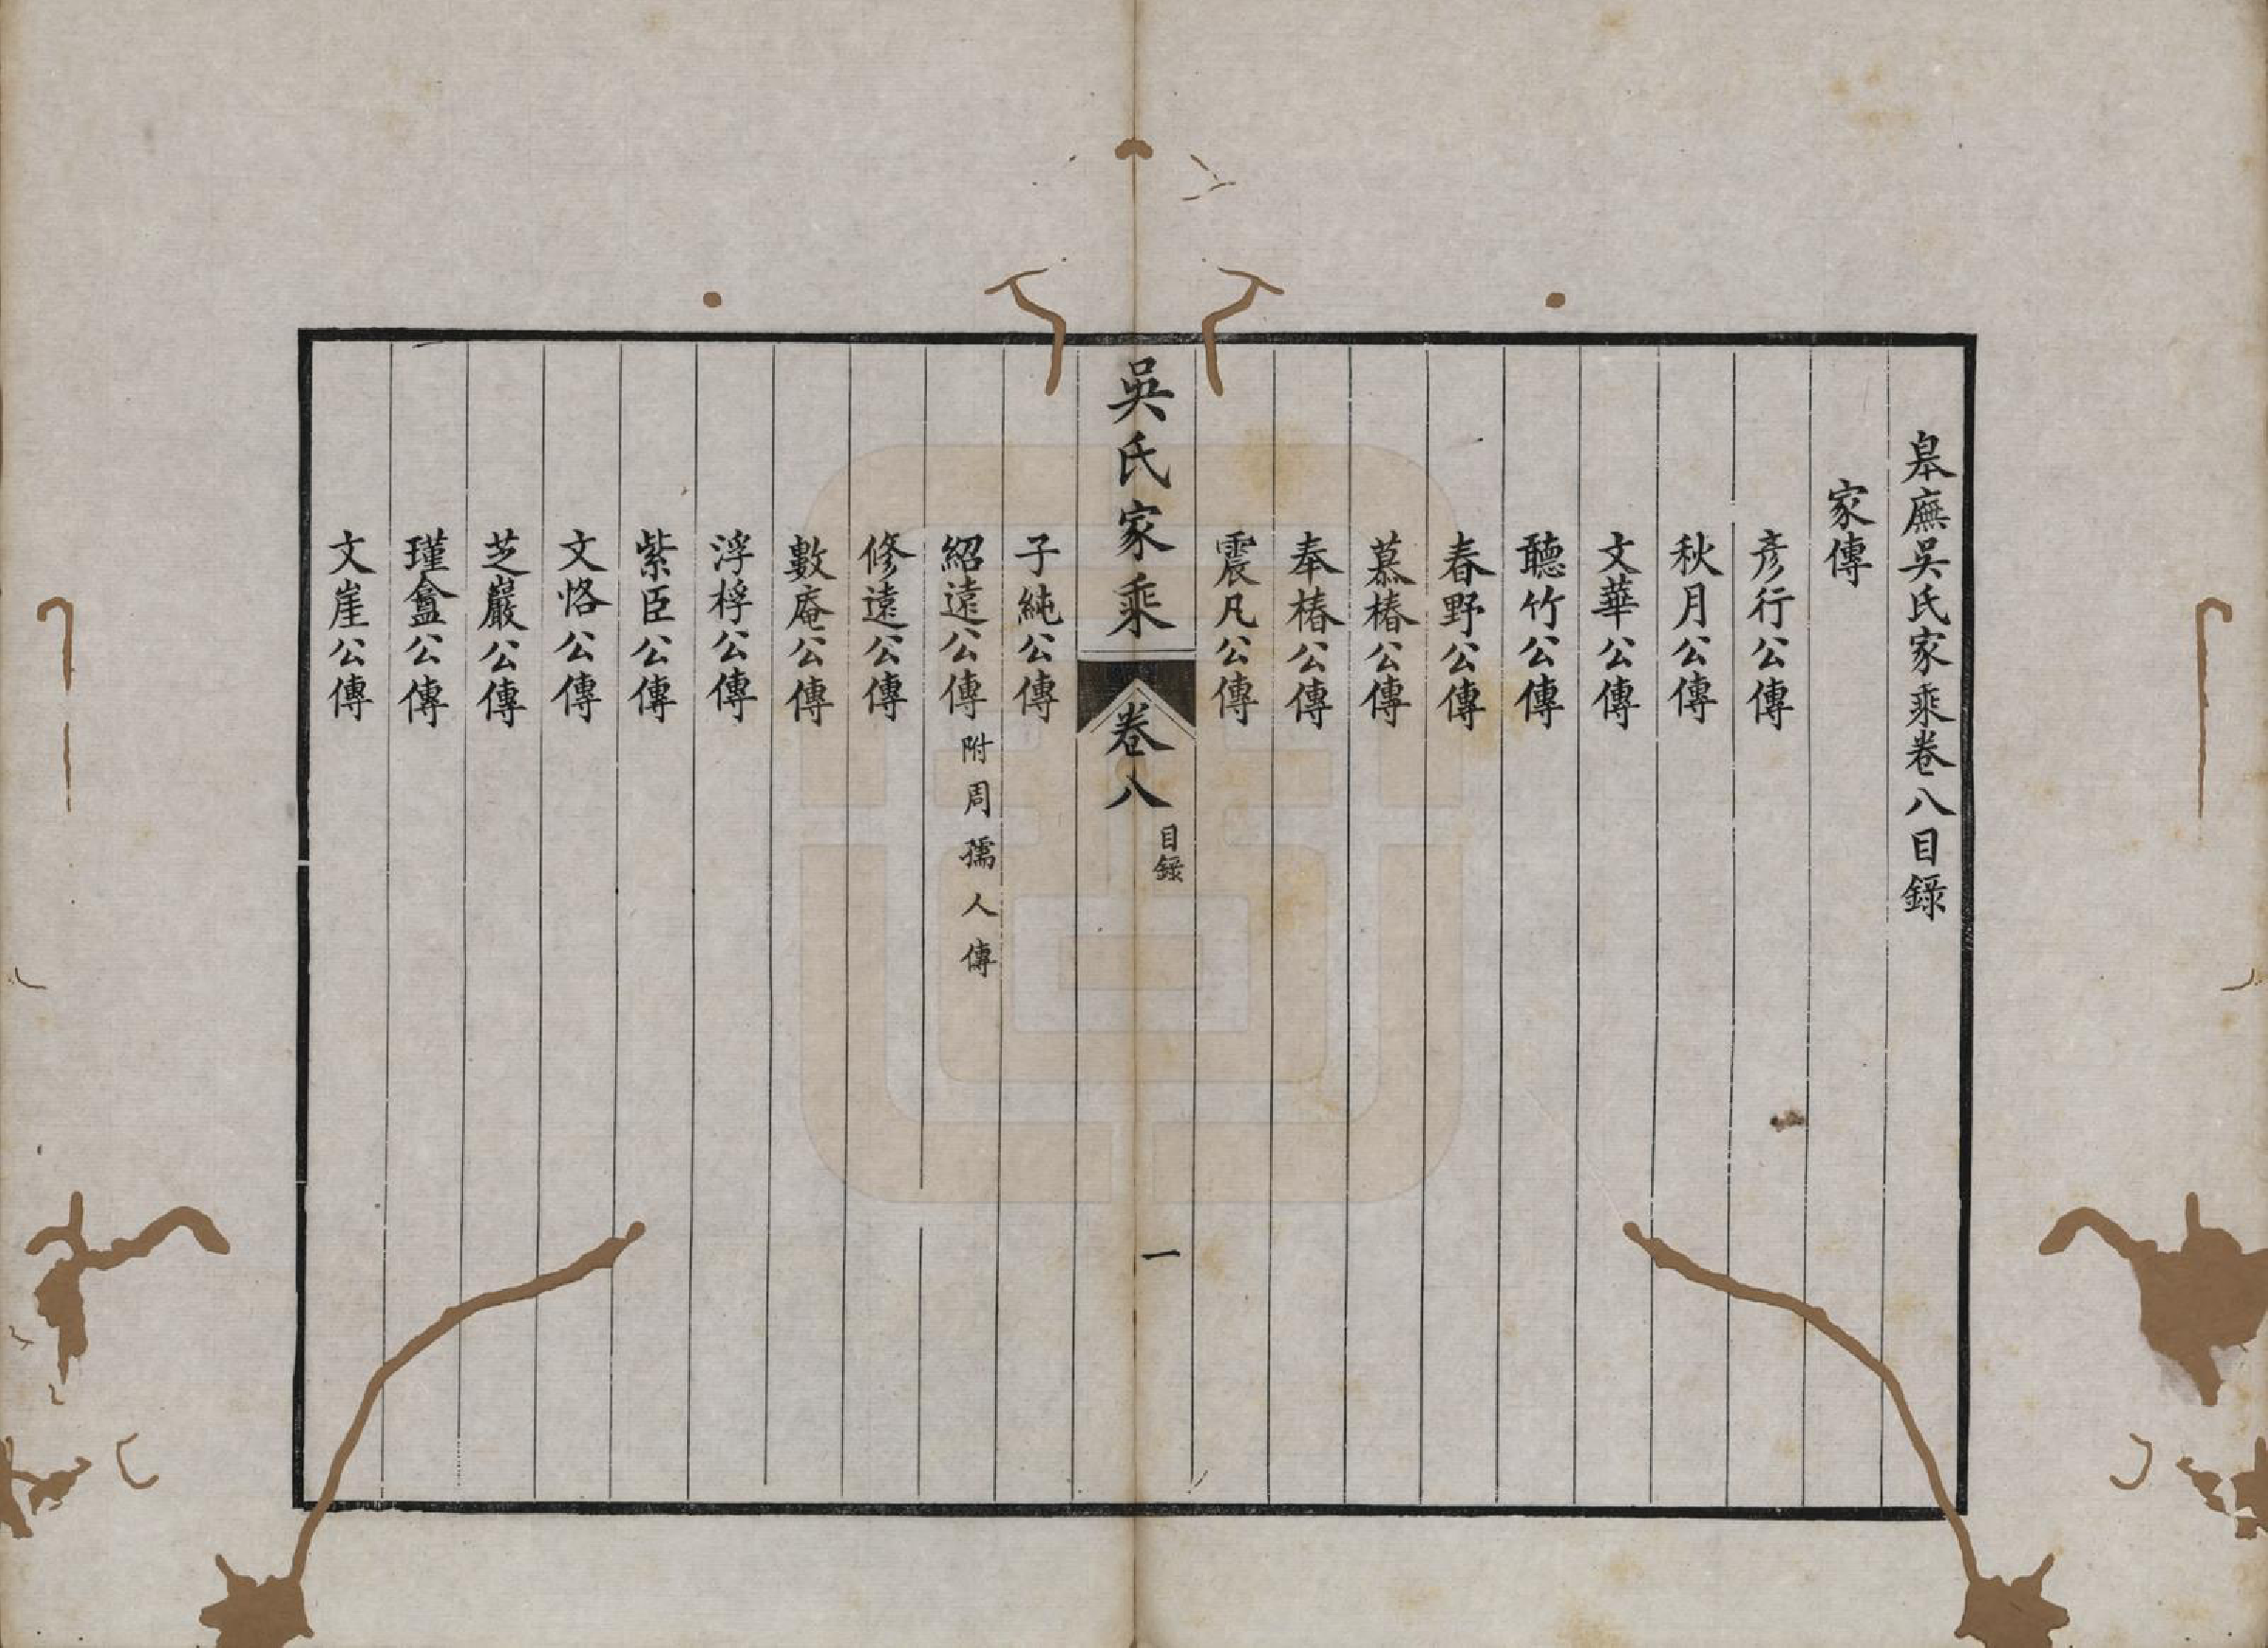 皋廡吳氏家乘卷八目錄
家傳
彥行公傳
秋月公傳
文華公傳
聽竹公傳
春野公傳
慕椿公傳
奉椿公傳
震凡公傳
吳氏家乘 卷八 目錄 一
子純公傳
紹遠公傳 附周孺人傳
修遠公傳
數庵公傳
浮桴公傳
紫臣公傳
文恪公傳
芝巖公傳
瑾盦公傳
文崖公傳